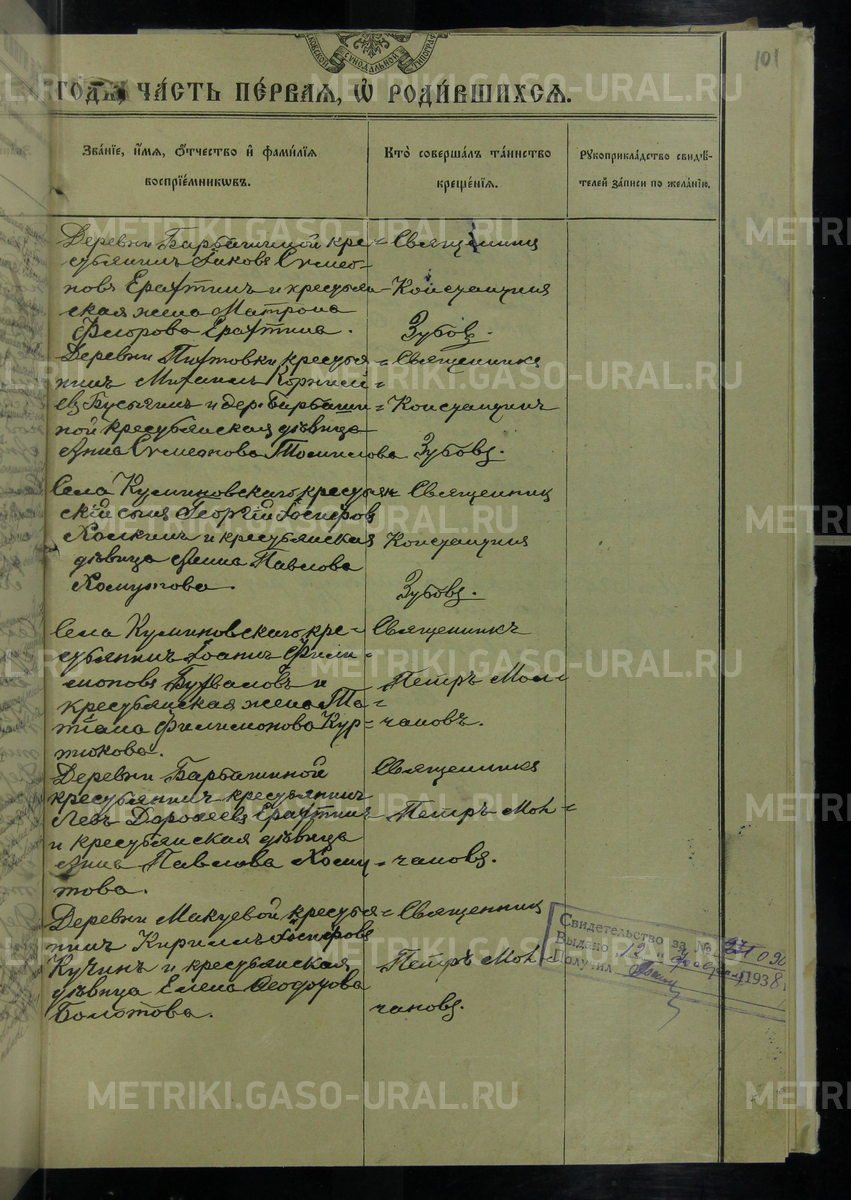 101
СУНОДАЛЬНОЙ
ГОДЪ, ЧАСТЬ ПЕРВАЯ, Ѡ РОДИВШИХСЯ.
Званіе, имя, отчество и фамилія воспріемниковъ.
Кто совершалъ таинство крещенія.
Рукоприкладство свидѣтелей записи по желанію.
Деревни Барбашиной кре-
стьянинъ Іаковъ Симео-
новъ Ераутинъ и крестьян-
ская жена Матрона
Флорова Ераутина.
Священникъ
Константинъ
Зубовъ.
Деревни крестья-
нинъ Михаилъ Корнилі-
евъ Бусыгинъ и дер. Барбаши-
ной крестьянская дѣвица
Анна Симеонова Томилова
Священникъ
Константинъ
Зубовъ.
Села Куминовскаго крестьян-
скій сынъ Георгій Іосифовъ
и крестьянская
дѣвица Анна Павлова
Хомутова.
Священникъ
Константинъ
Зубовъ.
Села Куминовскаго кре-
стьянинъ Іоаннъ Фили-
моновъ и
крестьянская жена Та-
тіана Филимонова Кур-
тюкова.
Священникъ
Петръ Мол-
чановъ.
Деревни Барбашиной
крестьянинъ крестьянинъ
Левъ Дорофеевъ Ераутинъ
и крестьянская дѣвица
Анна Павлова Хому-
това.
Священникъ
Петръ Мол-
чановъ.
Деревни Макуевой крестья-
нинъ Кириллъ Іосифовъ
Кучинъ и крестьянская
дѣвица Елена Ѳеодотова
Болотова.
Священникъ
Петръ Мол-
чановъ.
Свидетельство за №
Выдано 13 " февраля 1938 г.
Получил
METRIKI.GASO-URAL.RU